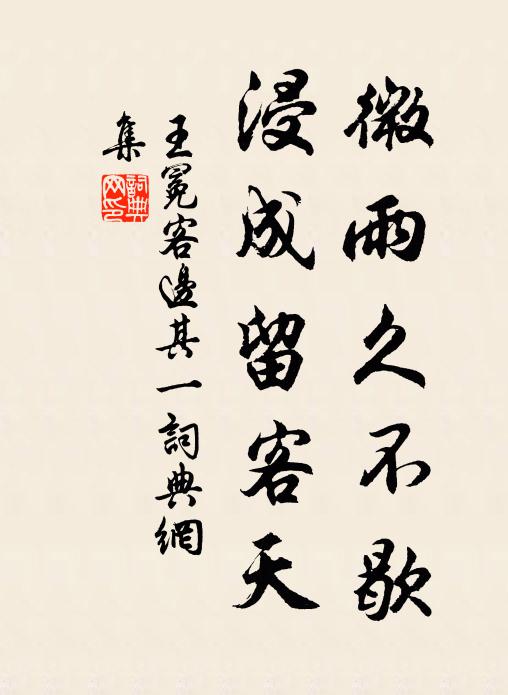 微雨久不歇
浸成留客天
王冕客邊其一詞典網
集
詞典
网印